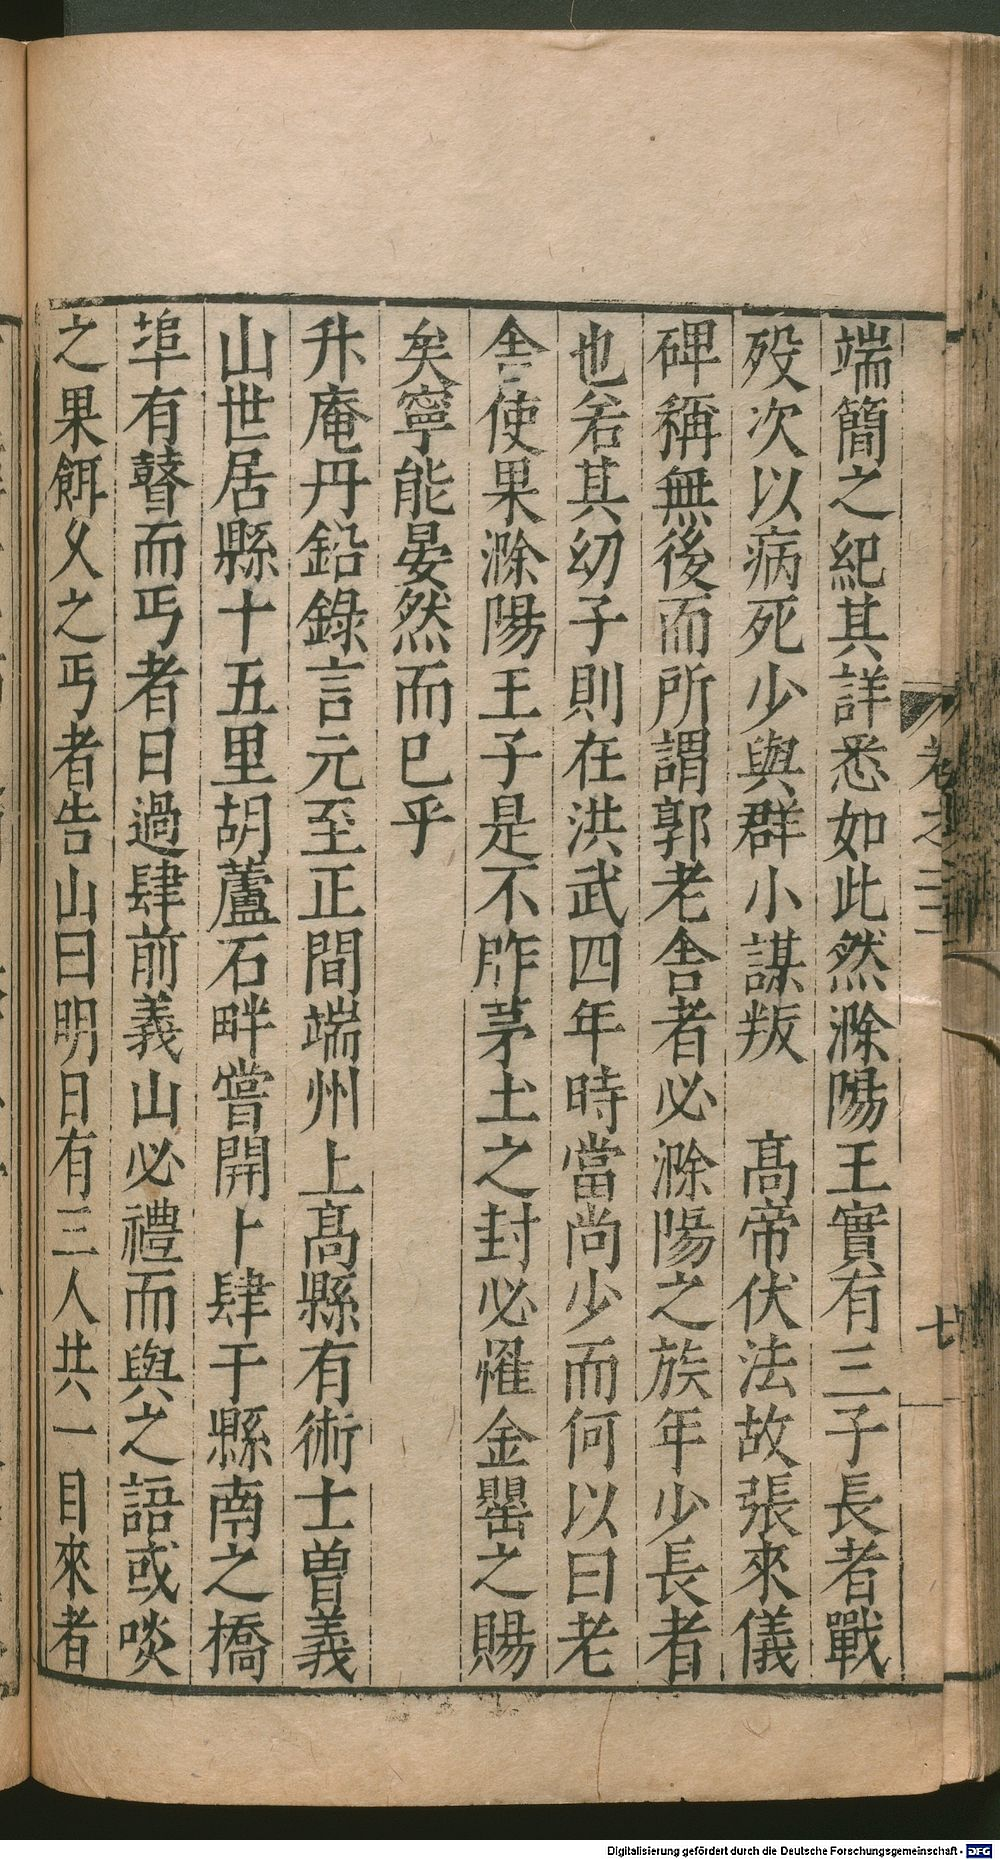 端簡之紀其詳悉如此然滁陽王實有三子長者戰
殁次以病死少與群小謀叛　高帝伏法故張來儀
碑稱無後而所謂郭老舎者必滁陽之族年少長者
也若其幼子則在洪武四年時當尚少而何以曰老
舎使果滁陽王子是不胙茅土之封必罹金罌之賜
矣寧能晏然而已乎
升庵丹鉛錄言元至正間端州上髙縣有術士曽義
山世居縣十五里胡蘆石畔嘗開卜肆于縣南之橋
埠有瞽而丐者日過肆前義山必禮而與之語或啖
之果餌久之丐者告山曰明日有三人共一目來者
卷之二
七
Digitalisierung gefördert durch die Deutsche Forschungsgemeinschaft - DFG